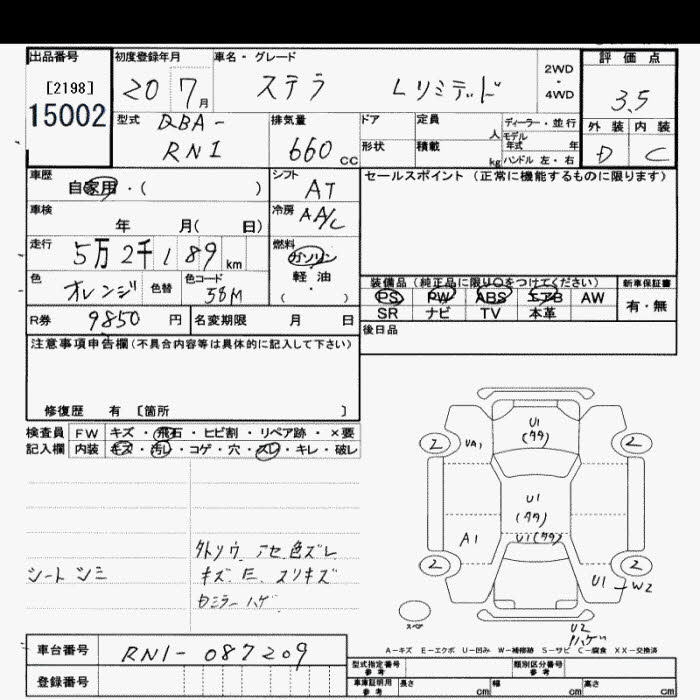 出品番号 初度登録年月 車名・グレード 2WD・4WD 評価点
[2198] 20 7月 ステラ Lリミテッド 3.5
15002
型式 DBA-RN1 排気量 660cc ドア 定員 人 ディーラー・並行
形状 積載 kg モデル年式 年 ハンドル 左・右
外装 内装
D C
車歴 自家用・( ) シフト AT セールスポイント(正常に機能するものに限ります)
車検 年 月( 日) 冷房 AA/C
走行 5万2千189km 燃料 ガソリン 軽・油 ( )
色 オレンジ 色替 色コード 58M
装備品(純正品に限り○をつけてください) 新車保証書
PS PW ABS エアB AW 有・無
SR ナビ TV 本革
R券 9850円 名変期限 月 日 後日品
注意事項申告欄(不具合内容等は具体的に記入して下さい)
修復歴 有 〔箇所 〕
検査員 FW キズ・飛石・ヒビ割・リペア跡・×要
記入欄 内装 キズ・汚レ・コゲ・穴・スレ・キレ・破レ
シートシミ
外トソウ アセ色ズレ
キズ E スリキズ
ミラーハゲ
U1
(タタ)
2 UA1 2
U1
(タタ)
A1 U1(タタ)
2 2
U1 W2
スペア
U2
ハゲ
A-キズ E-エクボ U-凹み W-補修跡 S-サビ C-腐食 XX-交換済
車台番号 RN1-087209
登録番号
型式指定番号 参考 類別区分番号 参考
車庫証明用 参考 長さ cm 幅 cm 高さ cm